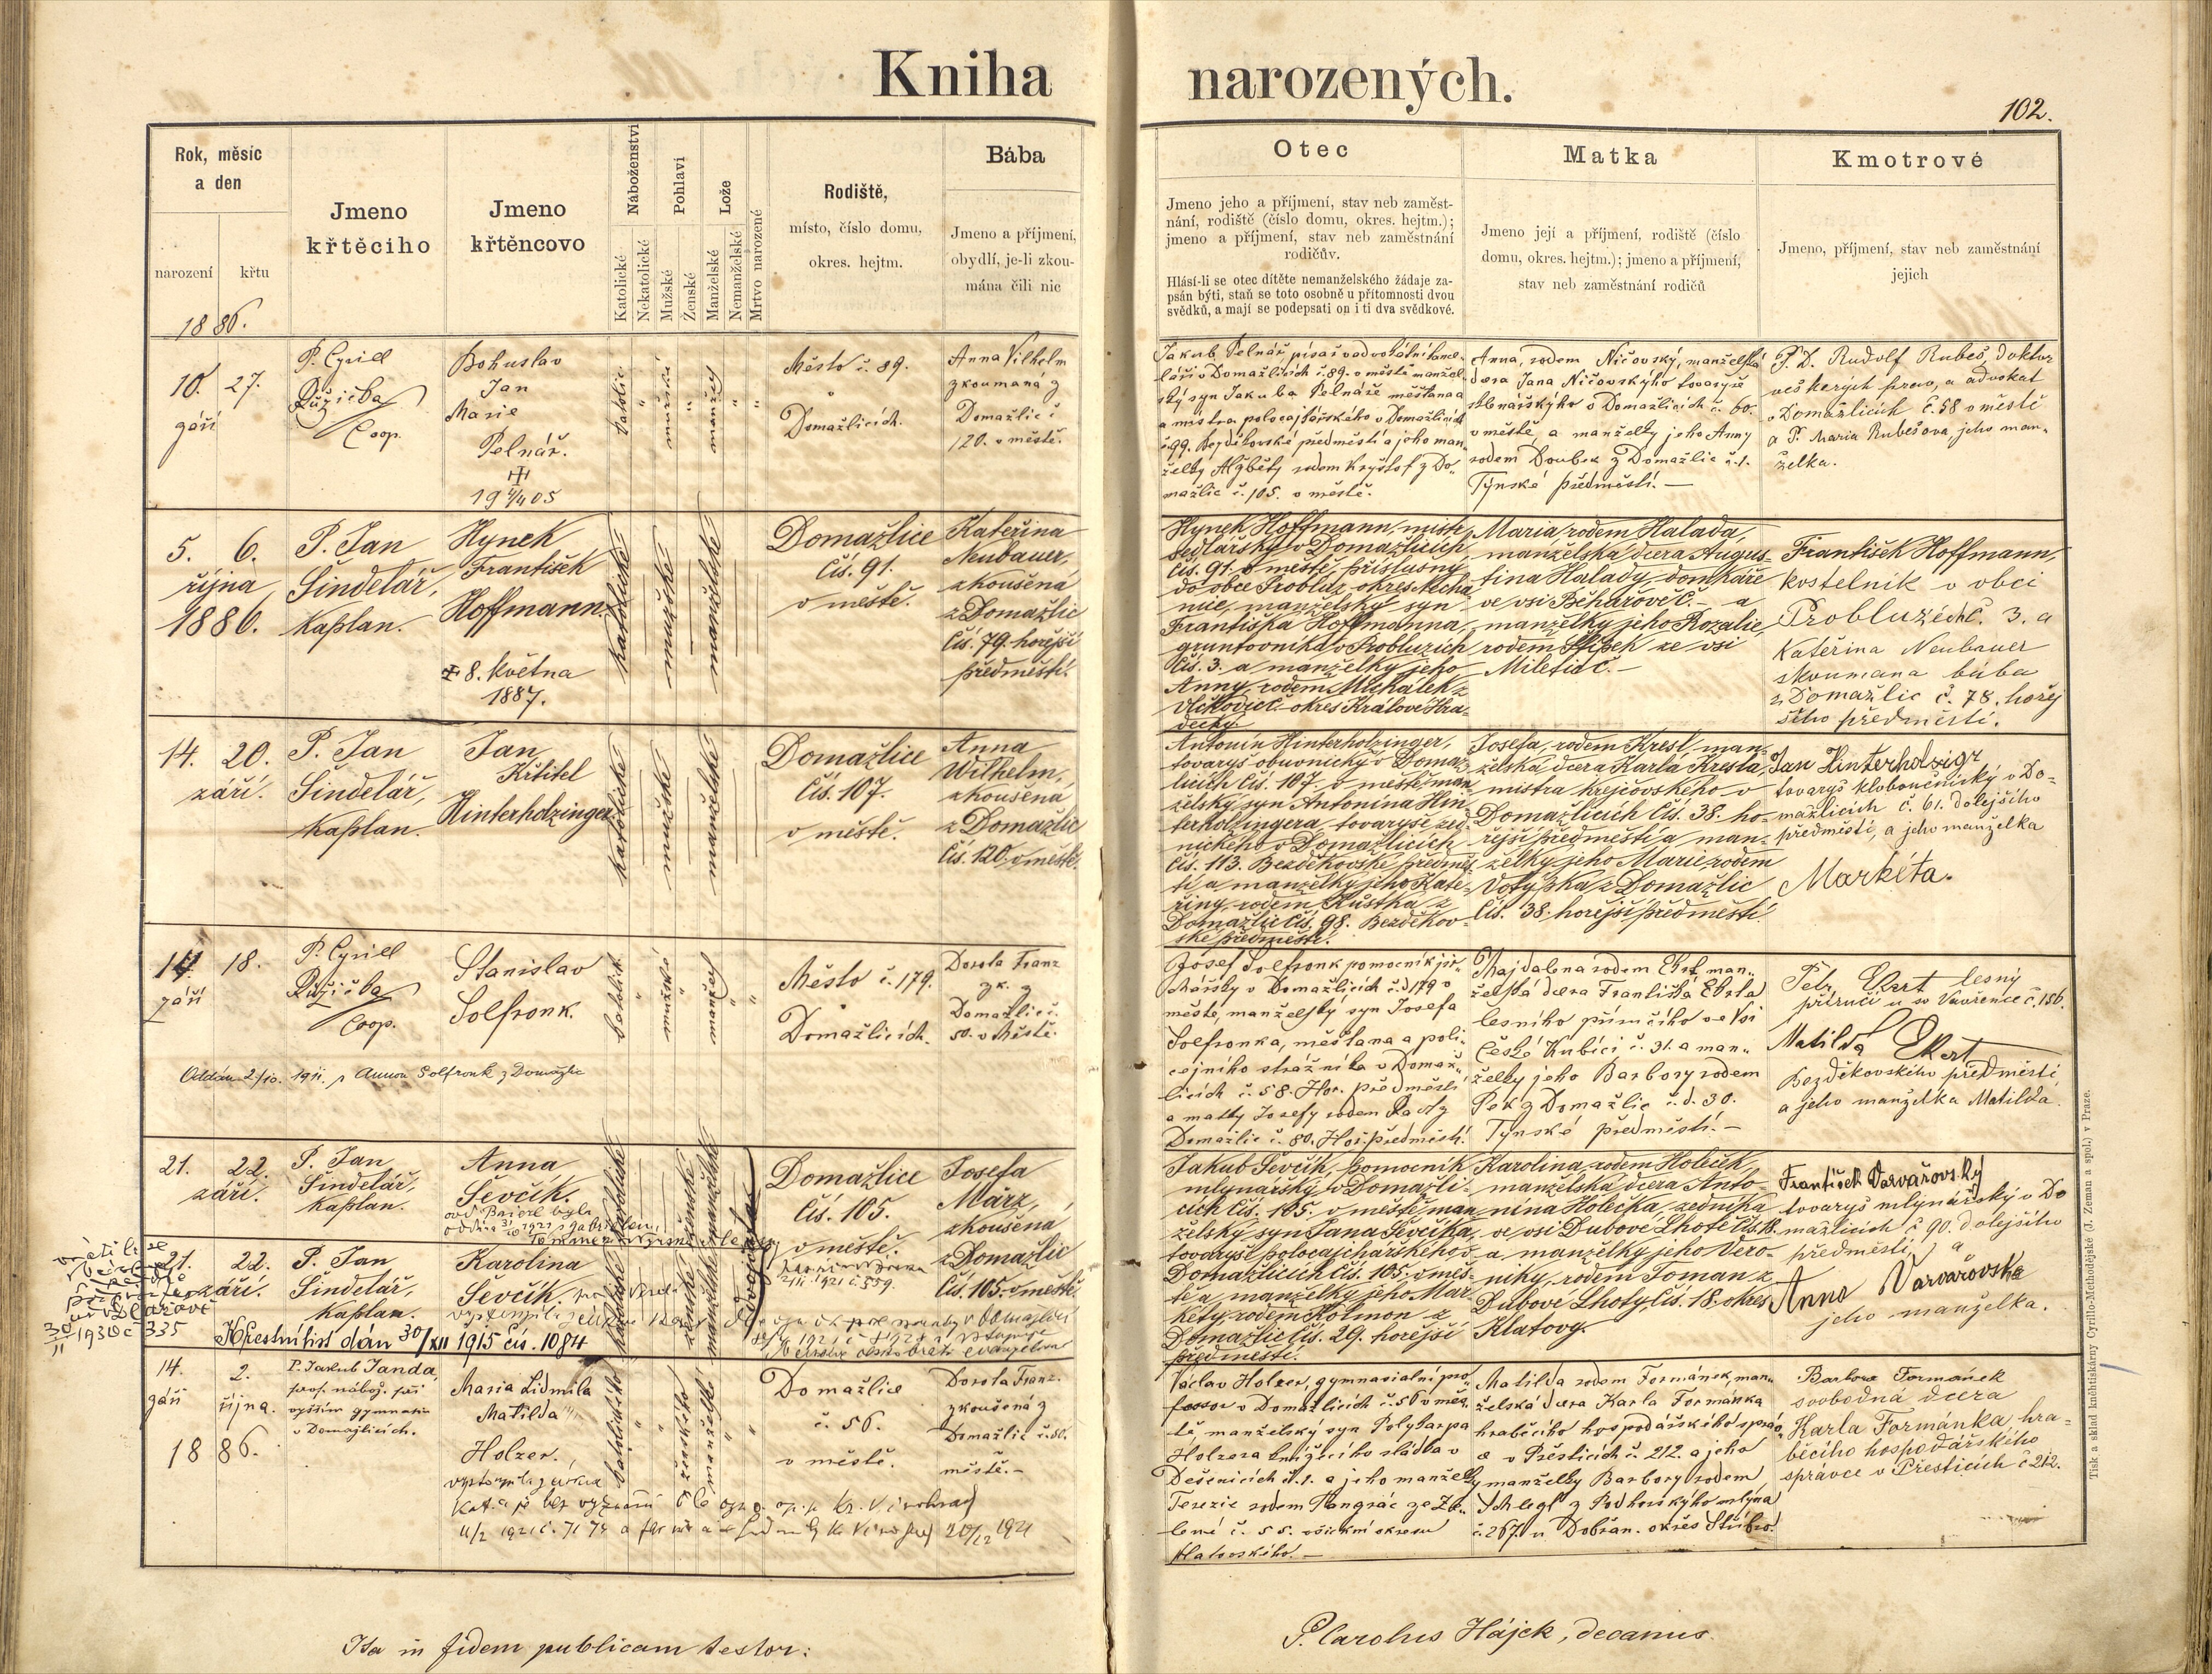 Kniha narozených.
102.
Rok, měsíc
a den
narození
křtu
1886.
Jmeno
křtěcího
Jmeno
křtěncovo
Náboženství
Katolické
Nekatolické
Pohlaví
Mužské
Ženské
Lože
Manželské
Nemanželské
Mrtvo narozené
Rodiště,
místo, číslo domu,
okres. hejtm.
Bába
Jmeno a příjmení,
obydlí, je-li zkou-
mána čili nic
Otec
Jmeno jeho a příjmení, stav neb zaměst-
nání, rodiště (číslo domu, okres. hejtm.);
jmeno a příjmení, stav neb zaměstnání
rodičův.
Hlásí-li se otec dítěte nemanželského žádaje za-
psán býti, staň se toto osobně u přítomnosti dvou
svědků, a mají se podepsati on i ti dva svědkové.
Matka
Jmeno její a příjmení, rodiště (číslo
domu, okres. hejtm.); jmeno a příjmení,
stav neb zaměstnání rodičů
Kmotrové
Jmeno, příjmení, stav neb zaměstnání
jejich
10. 27.
září
P. Cyrill
Růžička
Coop.
Bohuslav
Jan
Marie
Pelnář.
Město č. 89.
v
Domažlicích.
Anna Vilhelm
zkoumaná z
Domažlic č.
120. v městě.
Jakub Pelnář, písař v advokátní kance-
láři v Domažlicích č. 89. v městě manžel-
ský syn Jakuba Pelnáře měšťana a
a mistra polocajkářského v Domažlicích
č. 99. Bezděkovské předměstí a jeho man-
želky Alžběty rodem Kryštof z Do-
mažlic č. 105. v městě.
Anna, rodem Ničovský, manželská
dcera Jana Ničovského tovaryše
v Domažlicích č. 60.
v městě, a manželky jeho Anny
rodem Doubek z Domažlic č. 1.
Týnské předměstí. —
P. D. Rudolf Rubeš, doktor
veškerých práv, a advokát
v Domažlicích č. 58 v městě
a P. Maria Rubešova, jeho man-
želka.
5. 6.
října
1886.
P. Jan
Šindelář,
kaplan.
Hynek
František
Hoffmann.
8. května
1887.
katolické
mužské
manželské
Domažlice
čís. 91.
v městě.
Kateřina
Neubauer,
zkoušená
z Domažlic
čís. 79. hořejší
předměstí.
Hynek Hoffmann, mistr
sedlářský v Domažlicích
čís. 91. v městě, příslušný
do obce Probluz, okres Necha-
nice, manželský syn
Františka Hoffmanna,
gruntovníka v Probluzích
čís. 3. a manželky jeho
Anny, rodem Michálek z
Vlčkovic č. – okres Králové Hra-
decký.
Maria, rodem Halada,
manželská dcera Augus-
tina Halady, domkáře
ve vsi Běhařově č. – a
manželky jeho Rozalie,
rodem ze vsi
Miletic č. –
František Hoffmann,
kostelník v obci
Probluzích č. 3. a
Kateřina Neubauer
skoumaná bába
z Domažlic č. 78. hořej
šího předměstí.
14. 20.
září.
P. Jan
Šindelář,
kaplan.
Jan
Křtitel
Hinterholzinger.
katolické
mužské
manželské
Domažlice
čís. 107.
v městě.
Anna
Wilhelm,
zkoušená
z Domažlic
čís. 120. v městě.
Antonín Hinterholzinger,
tovaryš obuvnický v Domaž-
licích čís. 107. v městě, man-
želský syn Antonína Hin-
terholzingera tovaryše zed-
nického v Domažlicích
čís. 113. Bezděkovské předměs-
tí a manželky jeho Kate-
řiny, rodem Kůstka z
Domažlic čís. 98. Bezděkov-
ské předměstí.
Josefa, rodem Kresl, man-
želská dcera Karla Kresla,
mistra krejčovského v
Domažlicích čís. 38. ho-
řejší předměstí a man-
želky jeho Marie, rodem
Votýpka z Domažlic
čís. 38. hořejší předměstí
Jan Hinterholzigr
tovaryš kloboučnický v Do-
mažlicích č. 61. dolejšího
předměstí, a jeho manželka
Markéta.
14. 18.
září
P. Cyrill
Růžička
Coop.
Stanislav
Solfronk.
Město č. 179.
v
Domažlicích.
Dorota Franz
zk. z
Domažlic č.
50. v Městě.
Oddán 2/10. 1911. s Annou Solfronk z Domažlic
Josef Solfronk pomocník
v Domažlicích č. d. 179 v
městě, manželský syn Josefa
Solfronka, měšťana a poli-
cejního strážníka v Domaž-
licích č. 58. Hoř. předměstí
a matky Josefy rodem
Domažlic č. 80. Hoř. předměstí.
Majdalena rodem Ekrt, man-
želská dcera Františka Ekrta
lesního příručího ve vsi
České Kubici č. 31. a man-
želky jeho Barbory rodem
Pek z Domažlic č. d. 30.
Týnské předměstí. –
Petr Ekert lesný
příručí u sv Vavřence č. 156.
Matilda Ekert
Bezděkovského předměstí
a jeho manželka Matilda.
21. 22.
září.
P. Jan
Šindelář,
kaplan.
Anna
Ševčík.
katolické
ženské
manželské
dvojčata
Domažlice
čís. 105.
v městě.
Josefa
März,
zkoušená
z Domažlic
čís. 105. v městě.
21. 22.
září.
P. Jan
Šindelář,
kaplan.
Karolina
Ševčík
katolické
ženské
manželské
Křestní list dán 30/XII 1915 čís. 1084
Jakub Ševčík, pomocník
mlynářský v Domažli-
cích čís. 105. v městě, man-
želský syn Jana Ševčíka,
tovaryše polocajchařského v
Domažlicích čís. 105. v měs-
tě a manželky jeho Mar-
kéty, rodem Holmon z
Domažlic čís. 29. hořejší
předměstí.
Karolina, rodem Holeček,
manželská dcera Anto-
nína Holečka, zedníka
ve vsi Dubové Lhotě čís. 18.
a manželky jeho Vero-
niky, rodem Toman z
Dubové Lhoty čís. 18. okres
Klatovy.
František Varvařovský
tovaryš mlynářský v Do
mažlicích č 90. dolejšího
předměstí, a
Anna Varvařovska
jeho manželka.
14. 2.
září října.
1886.
P. Jakub Janda,
prof. nábož. při
vyšším gymnasiu
v Domažlicích.
Maria Lidmila
Matilda
Holzer.
Domažlice
č. 56.
v městě.
Dorota Franz.
zkoušená z
Domažlic č. 50.
městě. –
Václav Holzer, gymnasialní pro-
fessor v Domažlicích č. 56 v měs-
tě, manželský syn Polykarpa
Holzera knížecího sládka v
Dešenicích č. 1. a jeho manželky
Terezie rodem Pangrác ze Ze-
lené č. 55. okresu
Klatovského. –
Matilda rodem Formánek, man-
želská dcera Karla Formánka
hraběcího hospodářského správ-
ce v Přešticích č. 212. a jeho
manželky Barbory rodem
Schlegl z Podhorského mlýna
č. 267. u Dobřan. okres Stříbro.
Barbora Formánek
svobodná dcera
Karla Formánka, hra-
běcího hospodářského
správce v Přešticích č 212.
Ita in fidem publicam testor:
P. Carolus Hájek, decanus.
Tisk a sklad knihtiskárny Cyrillo-Methodějské (J. Zeman a spol.) v Praze.